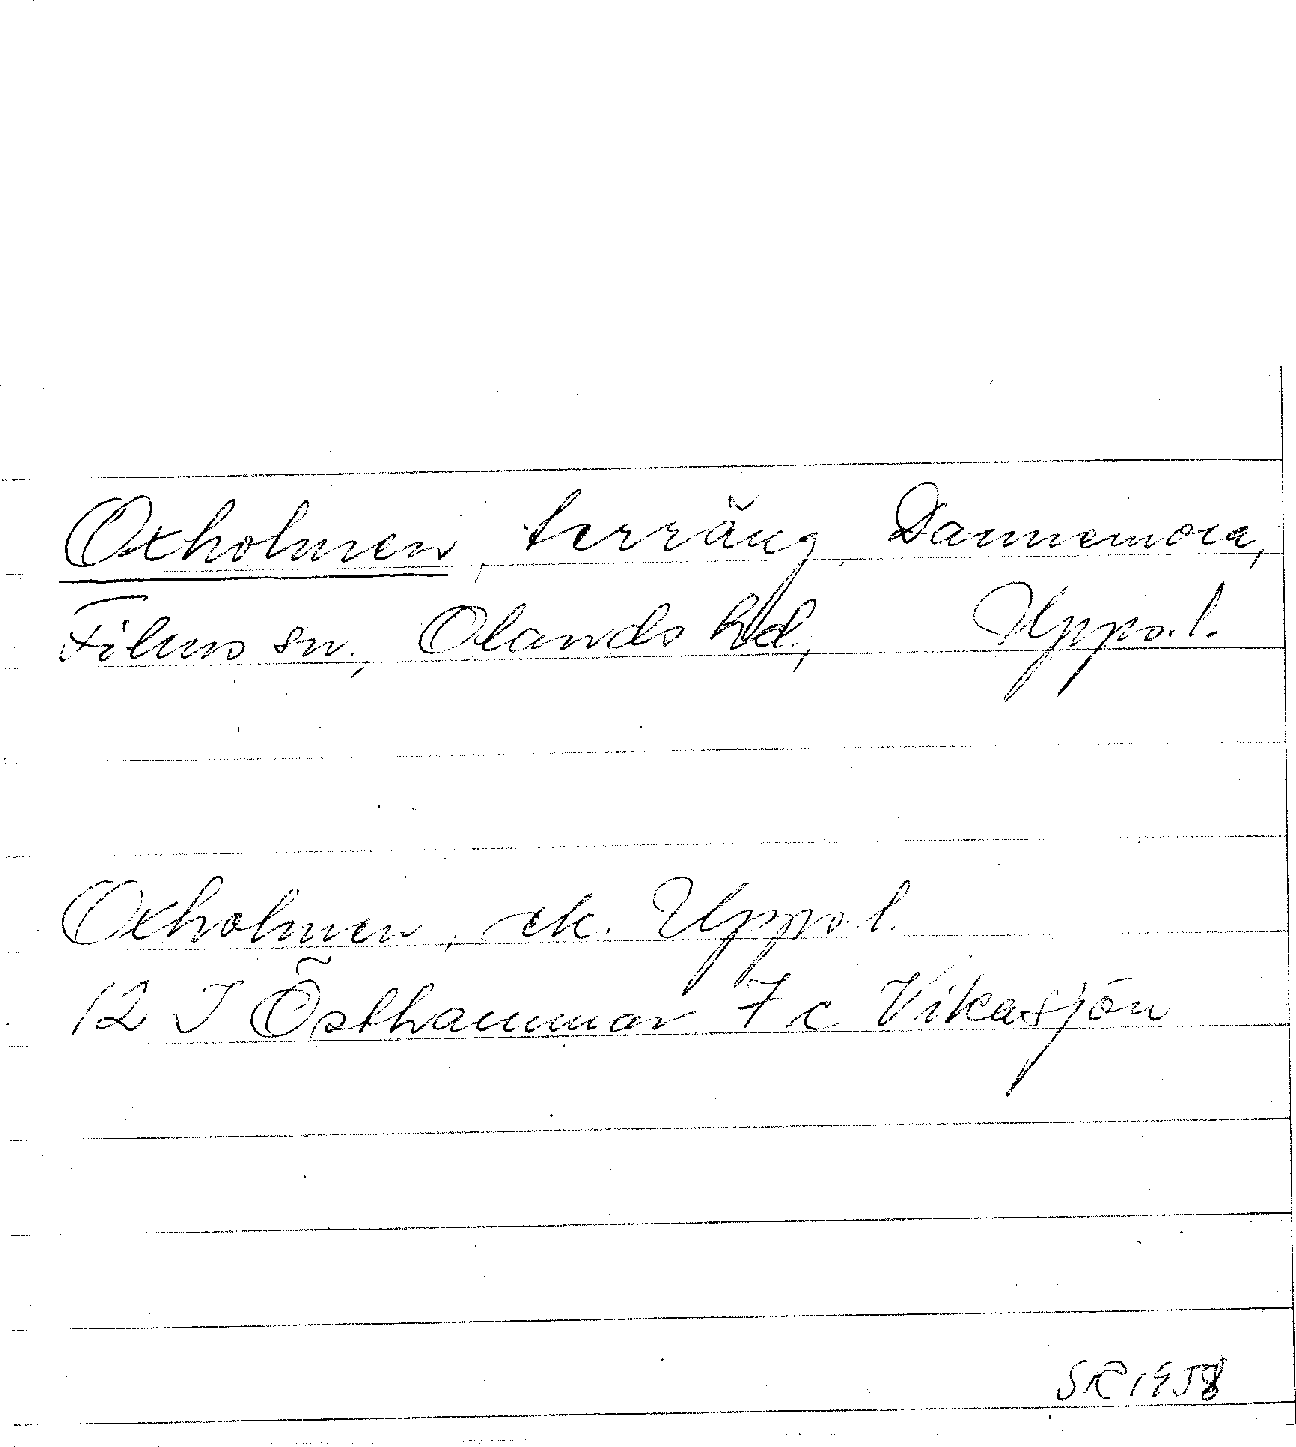 Oxholmen, terräng, Dannemora,
Films sn., Olands hd, Upps.l.
Oxholmen, ek. Upps l.
12 I Östhammar 7 c Vikasjön
SR 1958